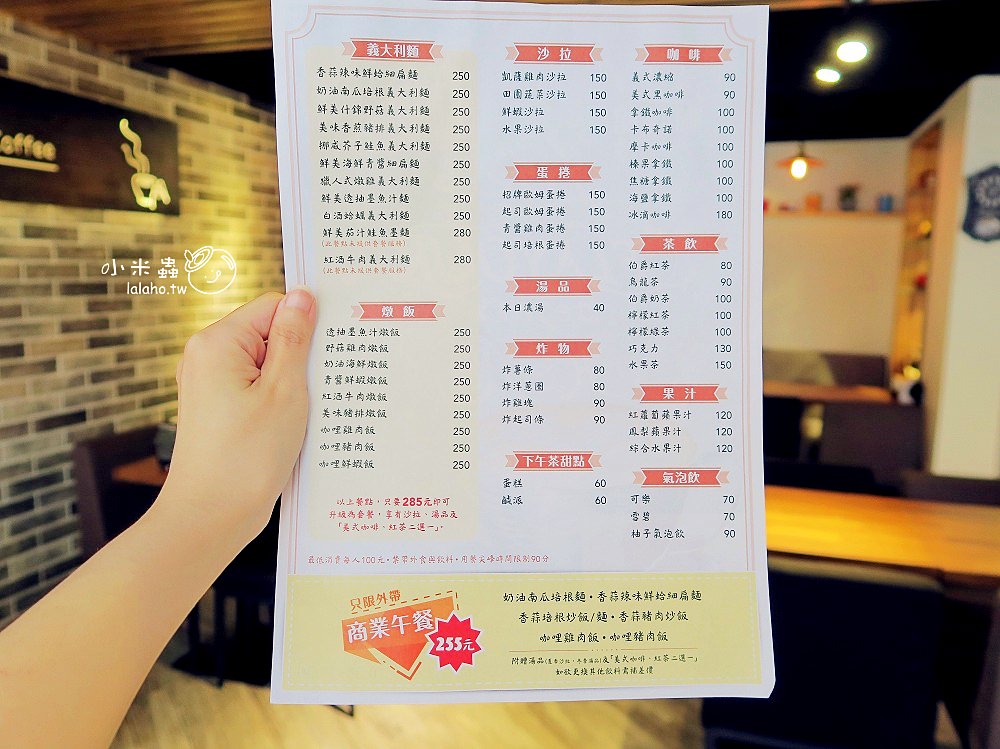 Coffee
小米蟲
lalaho.tw
義大利麵
香蒜辣味鮮蛤細扁麵 250
奶油南瓜培根義大利麵 250
鮮美什錦野菇義大利麵 250
美味香煎豬排義大利麵 250
挪威芥子鮭魚義大利麵 250
鮮美海鮮青醬細扁麵 250
獵人式燉雞義大利麵 250
鮮美透抽墨魚汁麵 250
白酒蛤蠣義大利麵 250
鮮美茄汁鮭魚墨麵 280
(此餐點未提供套餐服務)
紅酒牛肉義大利麵 280
(此餐點未提供套餐服務)
燉飯
透抽墨魚汁燉飯 250
野菇雞肉燉飯 250
奶油海鮮燉飯 250
青醬鮮蝦燉飯 250
紅酒牛肉燉飯 250
美味豬排燉飯 250
咖哩雞肉飯 250
咖哩豬肉飯 250
咖哩鮮蝦飯 250
以上餐點,只要285元即可
升級為套餐,享有沙拉、湯品及
「美式咖啡、紅茶二選一」。
沙拉
凱薩雞肉沙拉 150
田園蔬菜沙拉 150
鮮蝦沙拉 150
水果沙拉 150
蛋捲
招牌歐姆蛋捲 150
起司歐姆蛋捲 150
青醬雞肉蛋捲 150
起司培根蛋捲 150
湯品
本日濃湯 40
炸物
炸薯條 80
炸洋蔥圈 80
炸雞塊 90
炸起司條 90
下午茶甜點
蛋糕 60
鹹派 60
咖啡
義式濃縮 90
美式黑咖啡 90
拿鐵咖啡 100
卡布奇諾 100
摩卡咖啡 100
榛果拿鐵 100
焦糖拿鐵 100
海鹽拿鐵 100
冰滴咖啡 180
茶飲
伯爵紅茶 80
烏龍茶 90
伯爵奶茶 100
檸檬紅茶 100
檸檬綠茶 100
巧克力 130
水果茶 150
果汁
紅蘿蔔蘋果汁 120
鳳梨蘋果汁 120
綜合水果汁 120
氣泡飲
可樂 70
雪碧 70
柚子氣泡飲 90
最低消費每人100元・禁帶外食與飲料・用餐尖峰時間限制90分
只限外帶
商業午餐
255元
奶油南瓜培根麵・香蒜辣味鮮蛤細扁麵
香蒜培根炒飯/麵・香蒜豬肉炒飯
咖哩雞肉飯・咖哩豬肉飯
附贈湯品(夏季沙拉、冬季湯品)及「美式咖啡、紅茶二選一」
如欲更換其他飲料需補差價